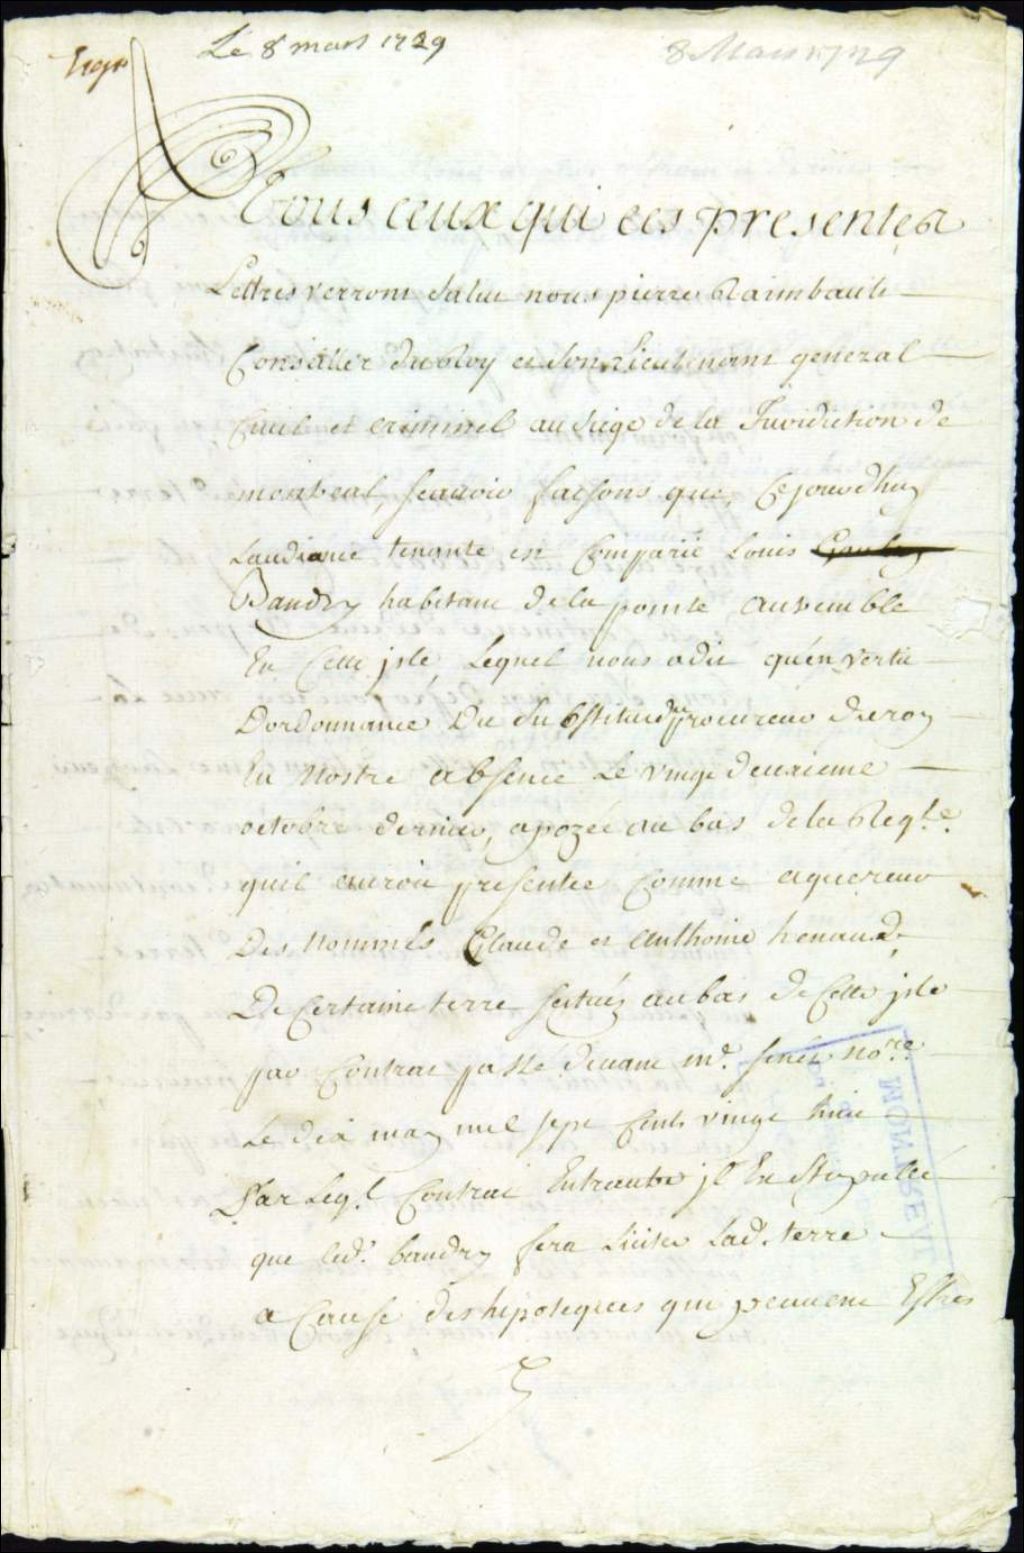 Le 8 mars 1729
8 Mars 1729
A Tous ceux qui ces presentes
Lettres verront Salut nous pierre Raimbault
Conseiller du Roy et Son Lieutenant general
Civil et criminel au Siege de la Juridiction de
montreal, scavoir faisons que, Cejourdhuy
Laudiance tenante est Comparû Louis
Baudry habitant de la pointe au tremble
En Cette jsle, Lequel nous a dit qu'en vertu
Dordonnance Du Substitud du procureur du roy
En Nostre absence Le vingt deuxieme
octobre dernier, apozée au bas de la Reqte.
quil auroit presentée Comme aquereur
Des Nommés Claude et Anthoine henaud
De Certaine terre scituéz au bas de Cette jsle
par Contrat passé devant me. senet nore.
Le dix may mil sept Cents vingt huit
Par Leql. Contrat Entrautre jl Est Stipullé
que led. baudry fera Liciter Lad. terre
a Cause des hipoteques qui peuvent Estre
MONTREAL